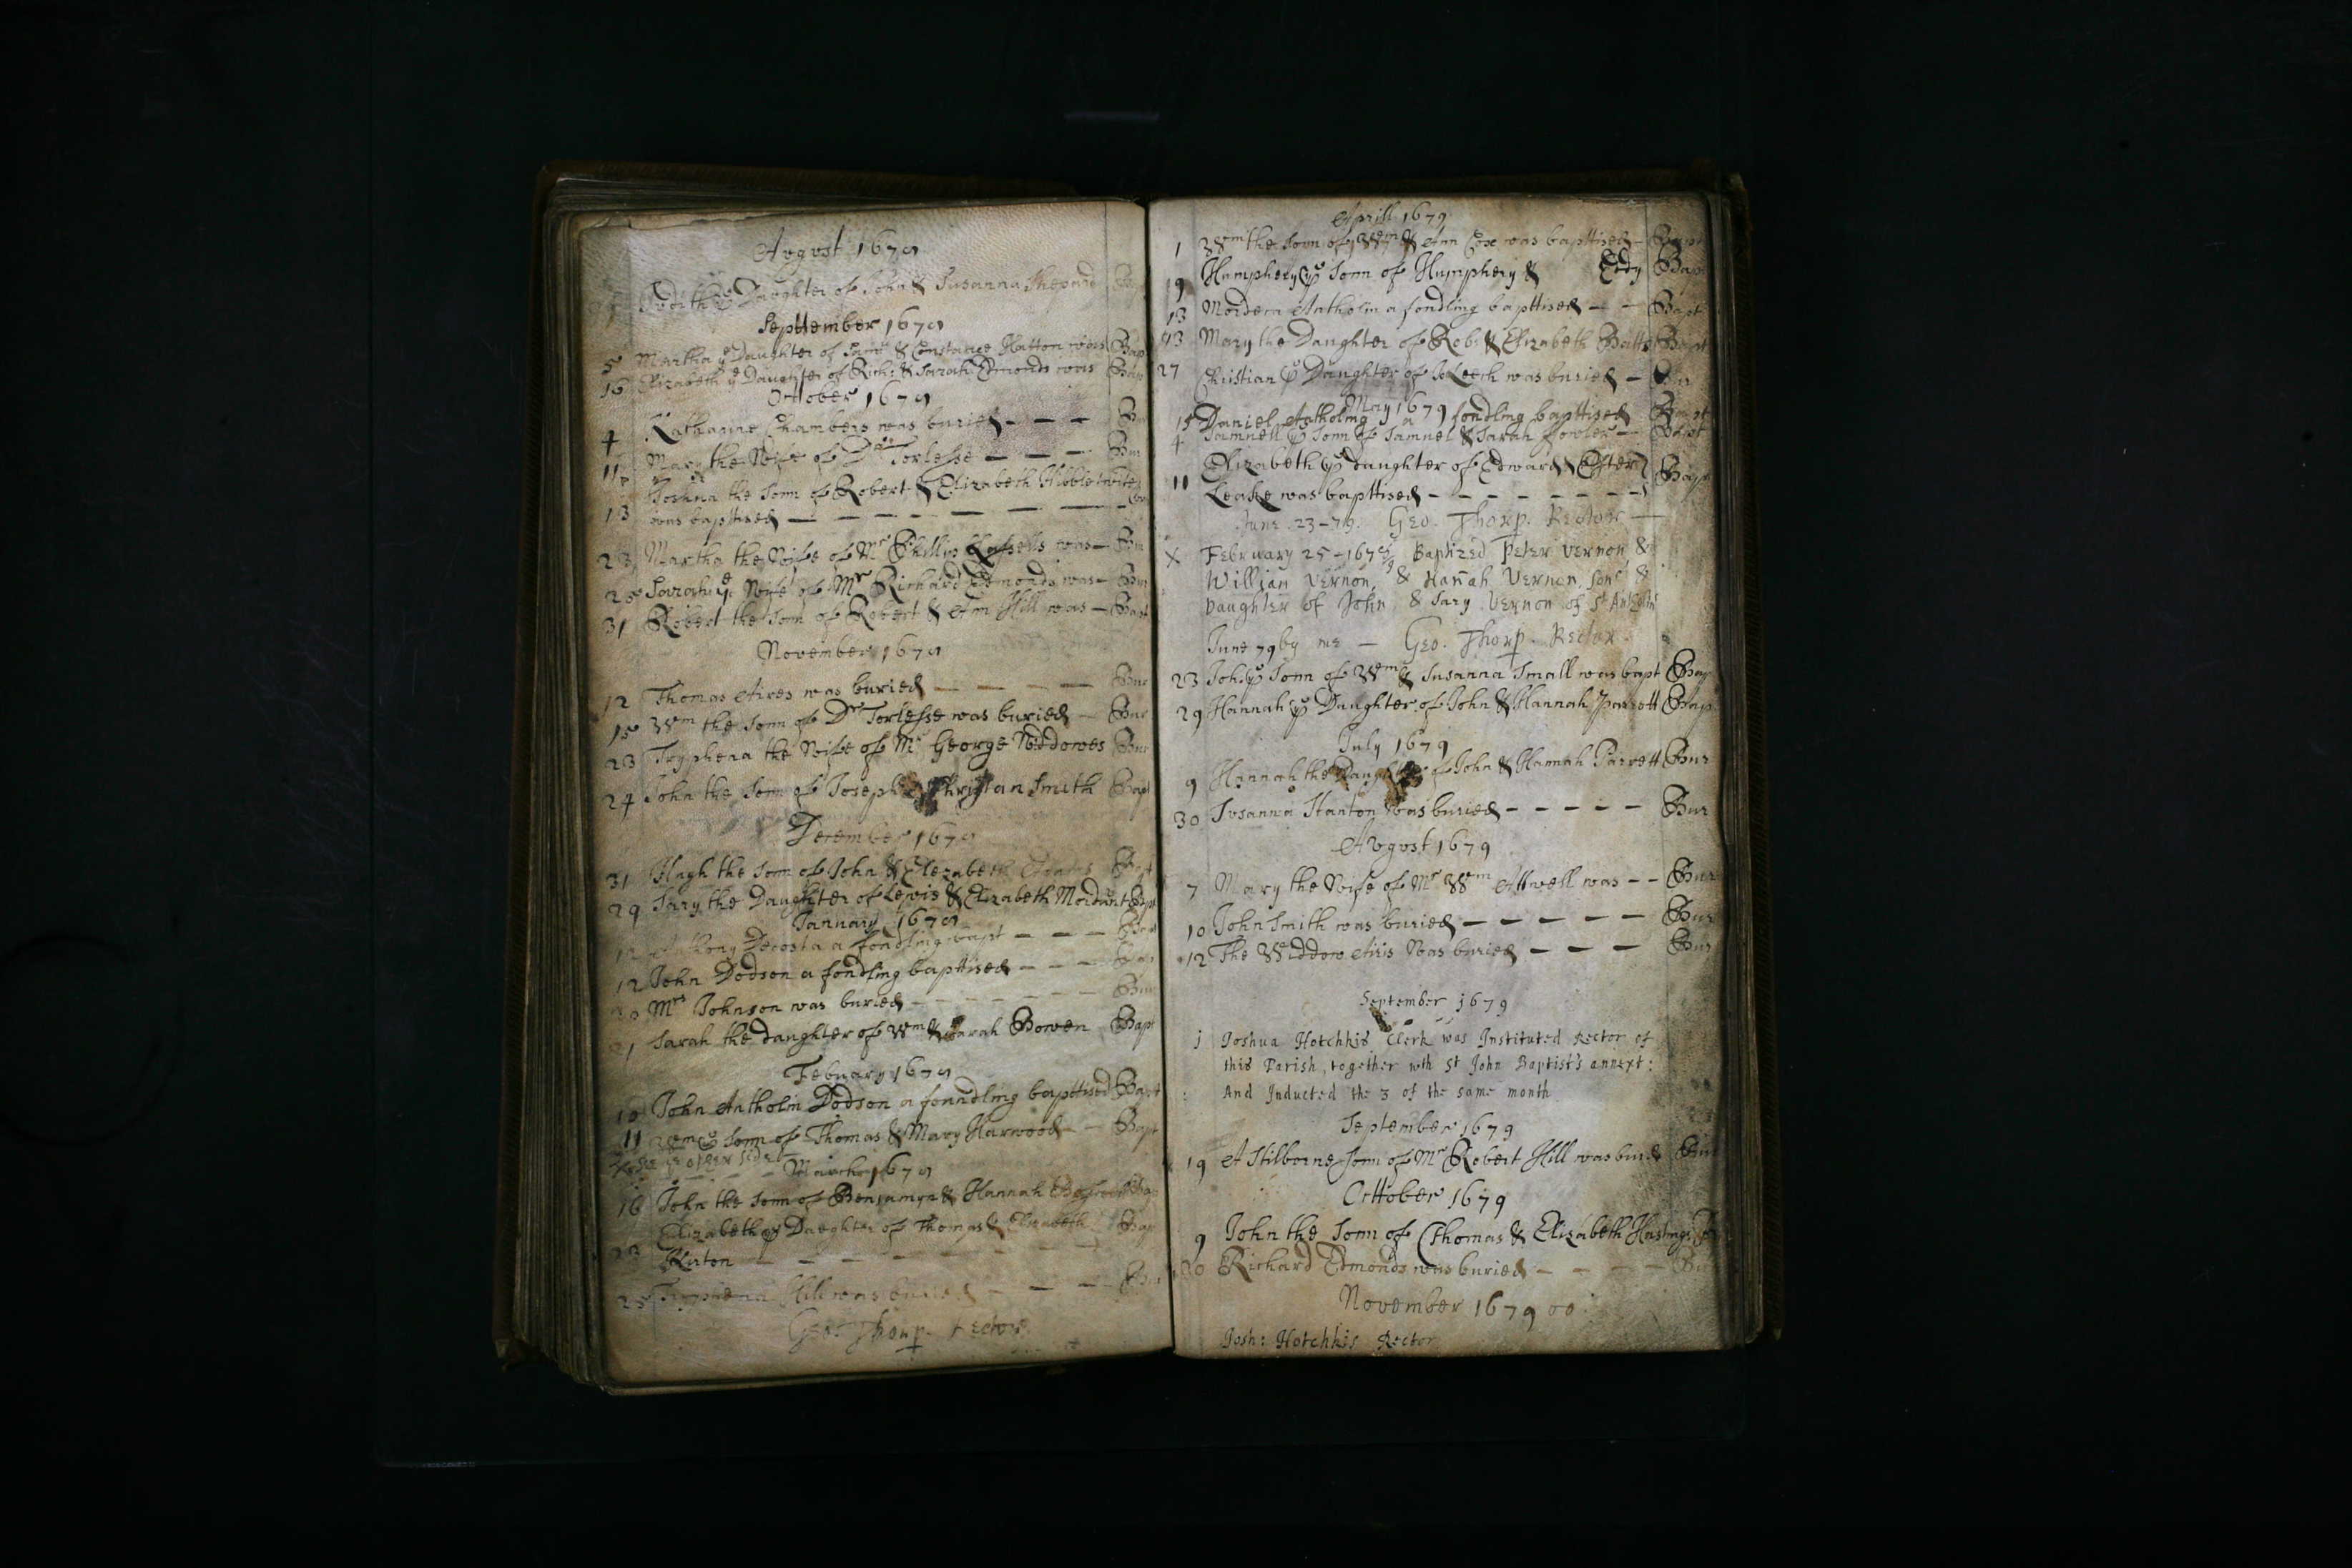 Avgvst 1678
Judith ye Daughter of John & Susanna Shepard
Septtember 1678
5 Martha ye Daughter of Saml & Constance Hatton was Bap
16 Elizabeth ye Daughter of Rich: & Sarah Edmonds was Bap
October 1678
4 Katharine Chambers was buried – – – Bur
11 Mary the Wife of Dr Torlesse – – – Bur
Joshua the Sonn of Robert & Elizabeth
13 was bapttised – – – – – –
23 Martha the Wife of Mr Phillip was – Bur
25 Sarah ye Wife of Mr Richard Edmonds was – Bur
31 Robert the Sonn of Robert & Ann Hill was – Bapt
November 1678
12 Thomas Aires was buried – – – – Bur
15 Wem the Sonn of Dr Torlesse was buried – Bur
23 Tryphena the Wife of Mr George Widdowes Bur
24 John the Sonn of Joseph & Christian Smith Bapt
December 1678
31 Hugh the Sonn of John & Elezabeth Bapt
29 Sary the Daughter of Lewis & Elizabeth Mordant Bapt
January 1678
12 Anthony Decosta a fondling bapt – – – Bapt
12 John Dodson a fondling bapttised – – – Bap
30 Mrs Johnson was buried – – – – – – Bur
31 Sarah the daughter of Wem & Sarah Bowen Bapt
Febuary 1678
10 John Antholin Dodson a fonndling bapttised Bapt
11 Wem ye Sonn of Thomas & Mary Harwood – – Bapt
See ye other side
March 1678
16 John the Sonn of Benjamyn & Hannah Bap
Elizabeth ye Daughter of Thomas & Elizabeth Bap
23 – – – – – –
25 Tryphena Hill was buried – – – Bur
Geo: Thorp. Rector
Aprill 1679
1 Wem the Sonn of Wem & Ann Cox was bapttised – Bapt
9 Humphery ye Sonn of Humphery & Eedy Bap
13 Mordeca Antholin a fondling bapttised – – Bapt
13 Mary the Daughter of Rob: & Elizabeth Butts Bapt
27 Christian ye Daughter of Jo Leech was buried – Bu
May 1679
15 Daniel Antholing a fondling bapttised Bapt
4 Samnell ye Sonn of Samuel & Sarah Fowler – Bapt
Elizabeth ye daughter of Edward & Ester
11 Leake was bapttised – – – – – – – Bap
June . 23 – 79. Geo. Thorp. Rector –
X February 25 – 1678/9 Baptized Peter Vernon &
William Vernon, & Hañah Vernon, Sons &
Daughter of John & Sary Vernon of St Antholins
June 79 by me – Geo. Thorp. Rector.
23 Joh: ye Sonn of Wem & Susanna Small was bapt Bap
29 Hannah ye Daughter of John & Hannah Parrott Bap
July 1679
9 Hannah the Daughter of John & Hannah Parrett Bur
30 Susanna Stanton was buried – – – – – Bur
Avgvst 1679
7 Mary the Wife of Mr Wem Attwell was – – Bur
10 John Smith was buried – – – – – Bur
12 The Widdow Airis was buried – – – Bur
September 1679
j Joshua Hotchkis Clerk was Instituted Rector of
this Parish, together wth St John Baptist's annext:
And Inducted the 3 of the same month
September 1679
19 A Stilborne Sonn of Mr Robert Hill was buried Bur
October 1679
9 John the Sonn of Thomas & Elizabeth Hastings
20 Richard Edmonds was buried – – – – Bu
November 1679 00
Josh: Hotchkis Rector